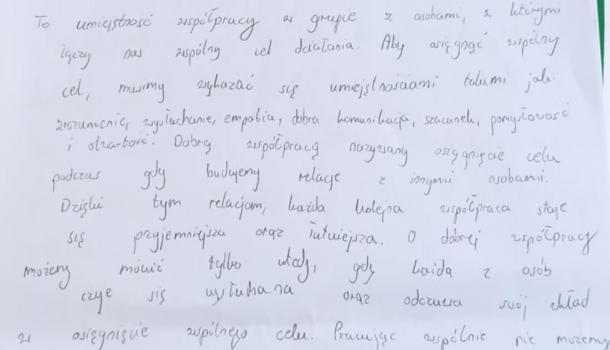 To umiejętność współpracy w grupie z osobami, z którymi
łączy nas wspólny cel działania. Aby osiągnąć wspólny
cel, musimy wykazać się umiejętnościami takimi jak
zrozumienie, wysłuchanie, empatia, dobra komunikacja, szacunek, pomysłowość
i otwartość. Dobrą współpracą nazywamy osiągnięcie celu
podczas gdy budujemy relacje z innymi osobami.
Dzięki tym relacjom, każda kolejna współpraca staje
się przyjemniejsza oraz łatwiejsza. O dobrej współpracy
możemy mówić tylko wtedy, gdy każda z osób
czuje się wysłuchana oraz odczuwa swój wkład
w osiągnięcie wspólnego celu. Pracując wspólnie nie możemy